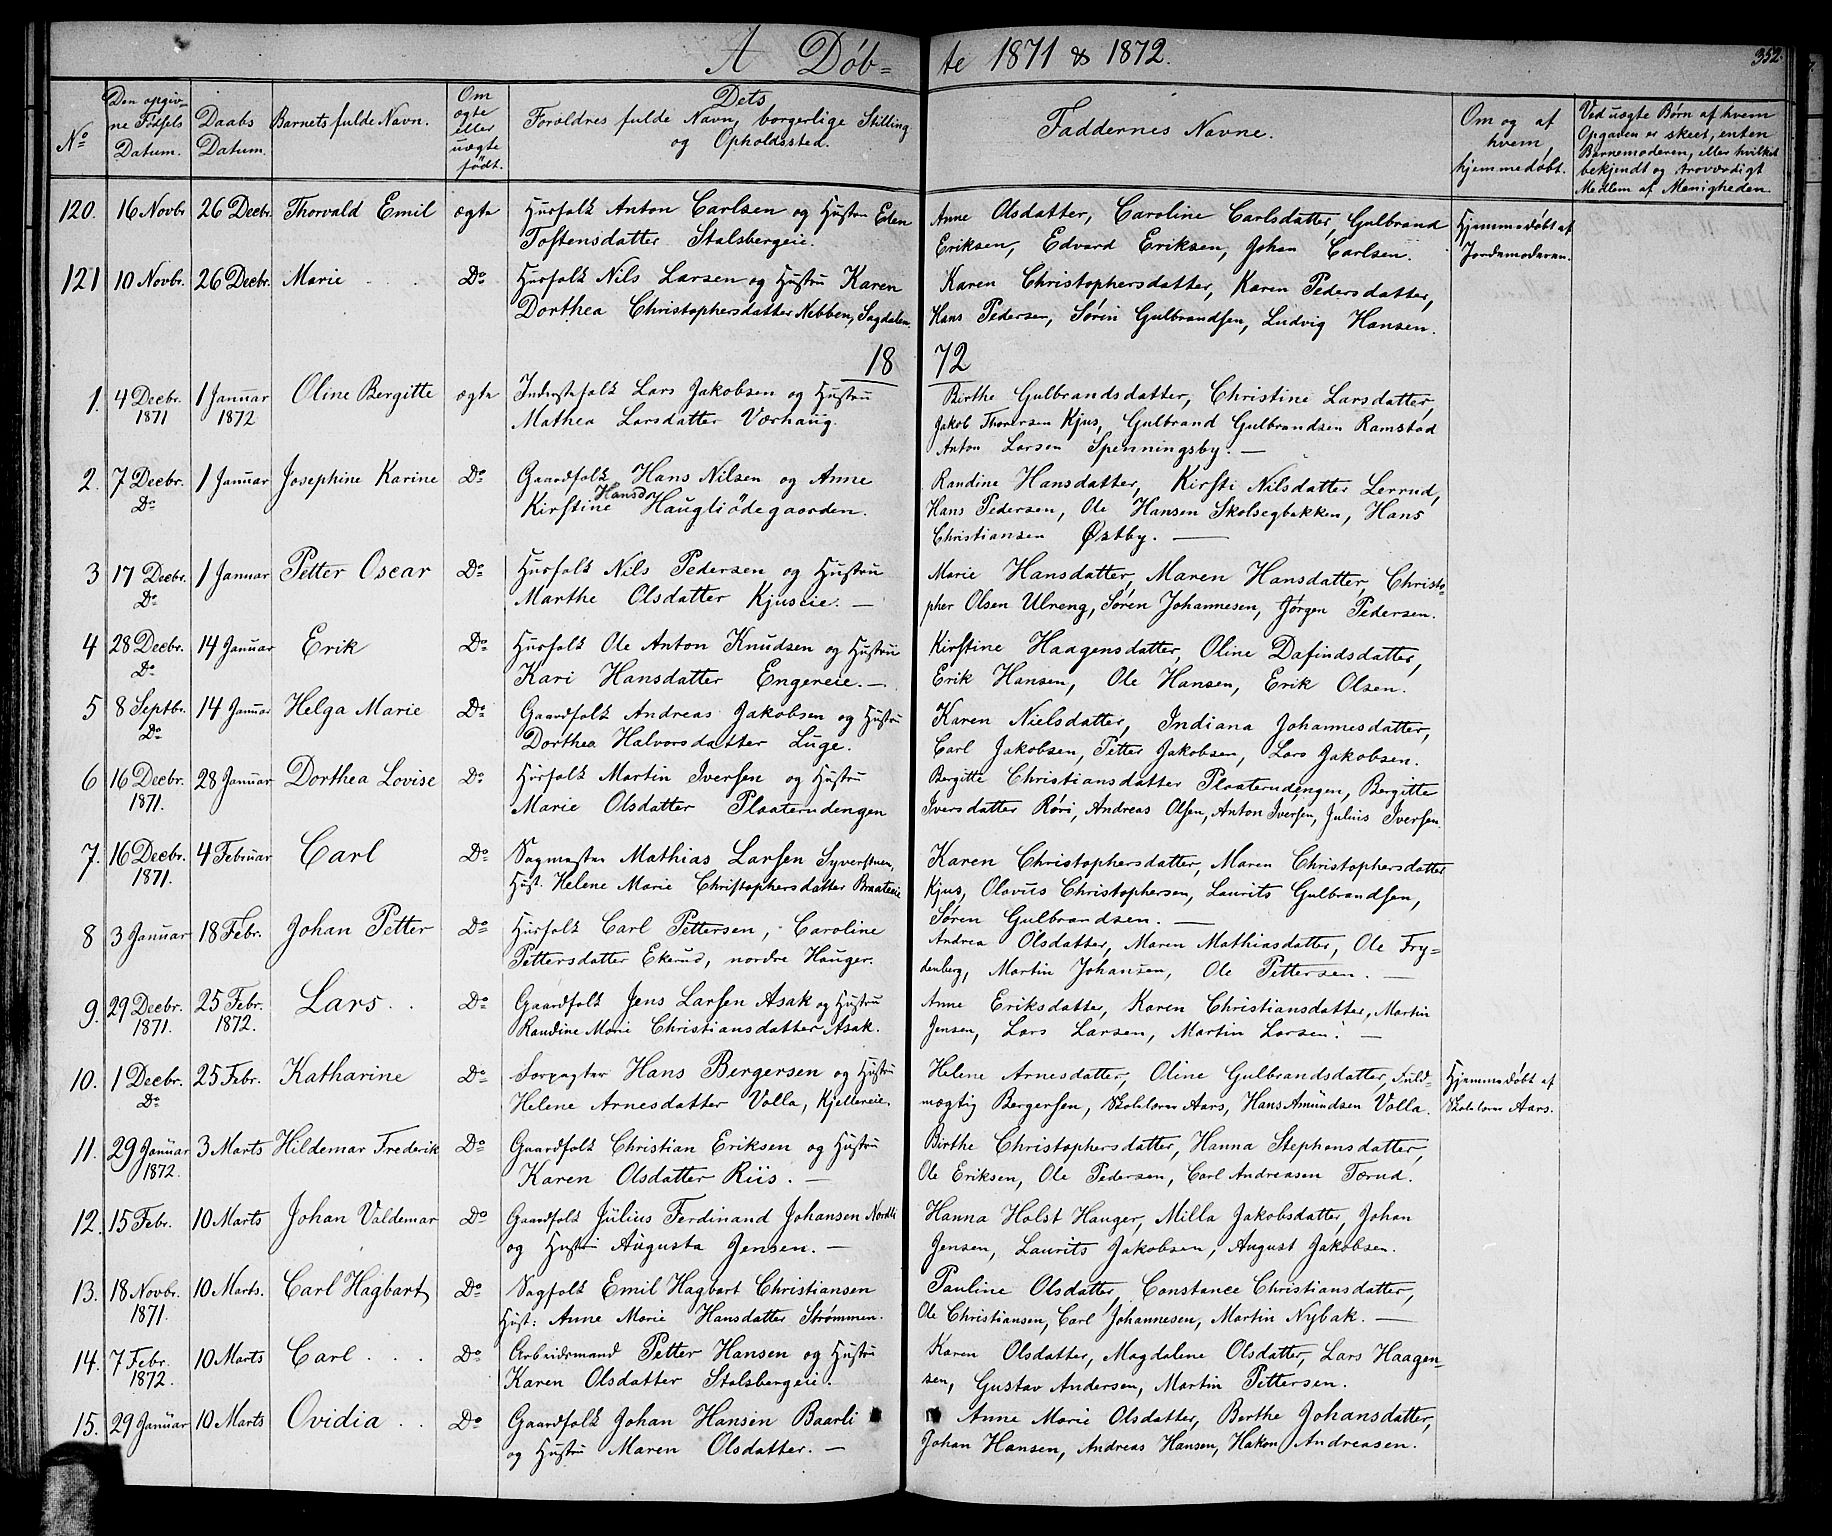 A Døb- te 1871 & 1872.
352.
No
Den opgiv-
ne Fødsels
Datum.
Daabs
Datum.
Barnets fulde Navn.
Om
ægte
eller
uægte
født.
Dets
Forældres fulde Navn, borgerlige Stilling
og Opholdssted.
Faddernes Navne.
Om og af
hvem
hjemmedøbt.
Ved uægte Børn af hvem
Opgaven er skeet, enten
Barnemoderen, eller hvilket
bekjendt og troværdigt
Medlem af Menigheden.
120. 16 Novbr 26 Decbr. Thorvald Emil ægte Husfolk Anton Carlsen og Hustru Eden
Toftensdatter Stalsbergeie.
Anne Olsdatter, Caroline Carlsdatter, Gulbrand
Eriksen, Edvard Eriksen, Johan Carlsen.
Hjemmedøbt af
Jordemoderen.
121 10 Novbr. 26 Decbr. Marie Do Husfolk Nils Larsen og Hustru Karen
Dorthea Christophersdatter Nebben, Sagdalen
Karen Christophersdatter, Karen Pedersdatter,
Hans Pedersen, Søren Gulbrandsen, Ludvig Hansen.
18 72
1. 4 Decbr. 1871 1 Januar 1872 Oline Bergitte ægte Inderstfolk Lars Jakobsen og Hustru
Mathea Larsdatter Værhaug.
Birthe Gulbrandsdatter, Christine Larsdatter,
Jakob Thorersen Kjus, Gulbrand Gulbrandsen Ramstad
Anton Larsen Spenningsby. —
2. 7 Decbr. Do 1 Januar Josephine Karine Do Gaardfolk Hans Nilsen og Anne
Kirstine Hansdr Haugliødegaarden.
Randine Hansdatter, Kirsti Nilsdatter Lerrud,
Hans Pedersen, Ole Hansen Skolsegbakken, Hans
Christiansen Østby. —
3 17 Decbr. Do 1 Januar Petter Oscar Do Husfolk Nils Pedersen og Hustru
Marthe Olsdatter Kjuseie. —
Marie Hansdatter, Maren Hansdatter, Christo-
pher Olsen Ulreng, Søren Johannesen, Jørgen Pedersen.
4 28 Decbr. Do 14 Januar Erik Do Husfolk Ole Anton Knudsen og Hustru
Kari Hansdatter Engereie. —
Kirstine Haagensdatter, Oline Dafindsdatter,
Erik Hansen, Ole Hansen, Erik Olsen.
5 8 Septbr. Do 14 Januar Helga Marie Do Gaardfolk Andreas Jakobsen og Hustru
Dorthea Halvorsdatter Luge.
Karen Nielsdatter, Indiana Johannesdatter,
Carl Jakobsen, Petter Jakobsen, Lars Jakobsen.
6 16 Decbr. 1871. 28 Januar Dorthea Lovise Do Husfolk Martin Iversen og Hustru
Marie Olsdatter Plaaterudengen
Bergitte Christiansdatter Plaaterudengen, Bergitte
Iversdatter Røri, Andreas Olsen, Anton Iversen, Julius Iversen.
7. 16 Decbr. 1871. 4 Februar Carl Do Sagmester Mathias Larsen Syverstuen,
Hust. Helene Marie Christophersdatter Braateeie
Karen Christophersdatter, Maren Christophersdatter
Kjus, Olavus Christophersen, Laurits Gulbrandsen,
Søren Gulbrandsen. —
8 3 Januar 18 Febr. Johan Petter Do Husfolk Carl Pettersen, Caroline
Pettersdatter Ekerud, nordre Hauger.
Andrea Olsdatter, Maren Mathiasdatter, Ole Fry-
denberg, Martin Johansen, Ole Pettersen. —
9. 29 Decbr. 1871. 25 Febr. 1872. Lars Do Gaardfolk Jens Larsen Asak og Hustru
Randine Marie Christiansdatter Asak.
Anne Eriksdatter, Karen Christiansdatter, Martin
Jensen, Lars Larsen, Martin Larsen. —
10. 1 Decbr. Do 25 Febr. Katharine Do Forpagter Hans Bergersen og Hustru
Helene Arnesdatter Volla, Kjellereie.
Helene Arnesdatter, Oline Gulbrandsdatter, Fuld-
mægtig Bergersen, Skolelærer Aars, Hans Amundsen Volla.
Hjemmedøbt af
Skolelærer Aars.
11. 29 Januar 1872. 3 Marts Hildemar Frederik Do Gaardfolk Christian Eriksen og Hustru
Karen Olsdatter Riis. —
Birthe Christophersdatter, Hanna Stephensdatter,
Ole Eriksen, Ole Pedersen, Carl Andreasen Torud.
12. 15 Febr. 10 Marts Johan Valdemar Do Gaardfolk Julius Ferdinand Johansen Nordli
og Hustru Augusta Jensen. —
Hanna Holst Hauger, Milla Jakobsdatter, Johan
Jensen, Laurits Jakobsen, August Jakobsen.
13. 18 Novbr. 1871. 10 Marts. Carl Hagbart Do Sagfolk Emil Hagbart Christiansen
Hust: Anne Marie Hansdatter Strømmen.
Pauline Olsdatter, Constance Christiansdatter,
Ole Christiansen, Carl Johannesen, Martin Nybak. —
14. 7 Febr. 1872. 10 Marts Carl Do Arbeidsmand Petter Hansen og Hustru
Karen Olsdatter Stalsbergeie.
Karen Olsdatter, Magdalene Olsdatter, Lars Haagen-
sen, Gustav Andersen, Martin Pettersen.
15. 29 Januar 10 Marts Ovidia Do Gaardfolk Johan Hansen Baarli
og Hustru Maren Olsdatter. —
Anne Marie Olsdatter, Berthe Johansdatter,
Johan Hansen, Andreas Hansen, Hakon Andreasen.